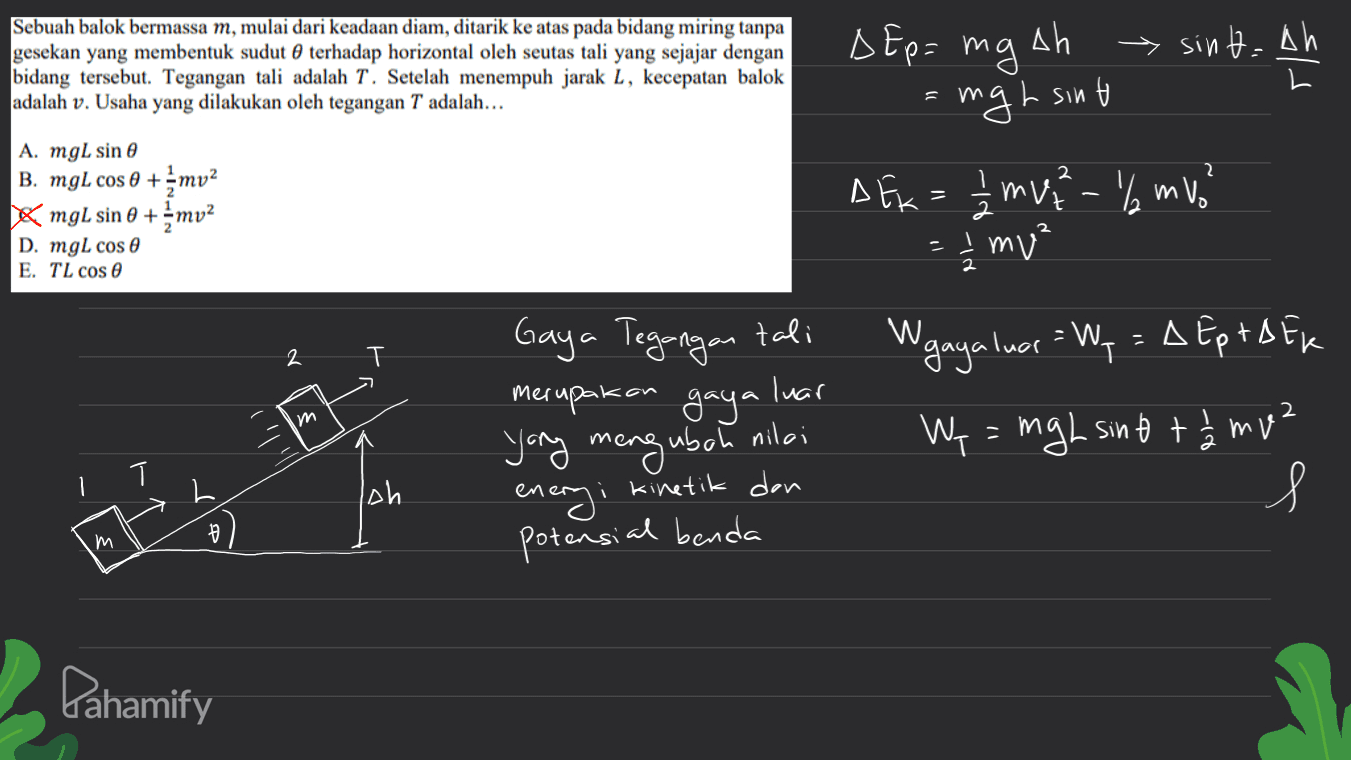 Sebuah balok bermassa m, mulai dari keadaan diam, ditarik ke atas pada bidang miring tanpa
gesekan yang membentuk sudut θ terhadap horizontal oleh seutas tali yang sejajar dengan
bidang tersebut. Tegangan tali adalah T. Setelah menempuh jarak L, kecepatan balok
adalah v. Usaha yang dilakukan oleh tegangan T adalah…
A. mgL sin θ
B. mgL cos θ + ½mv²
C. mgL sin θ + ½mv²
D. mgL cos θ
E. TL cos θ
ΔEp = mg Δh → sin θ = Δh/L
= mgL sin θ
ΔEk = ½ mv_t² - ½ mv₀²
= ½ mv²
Gaya Tegangan tali
merupakan gaya luar
yang mengubah nilai
energi kinetik dan
potensial benda
W gaya luar = W_T = ΔEp + ΔEk
W_T = mgL sin θ + ½ mv²
2 T
m
1 T L
m θ Δh
Pahamify